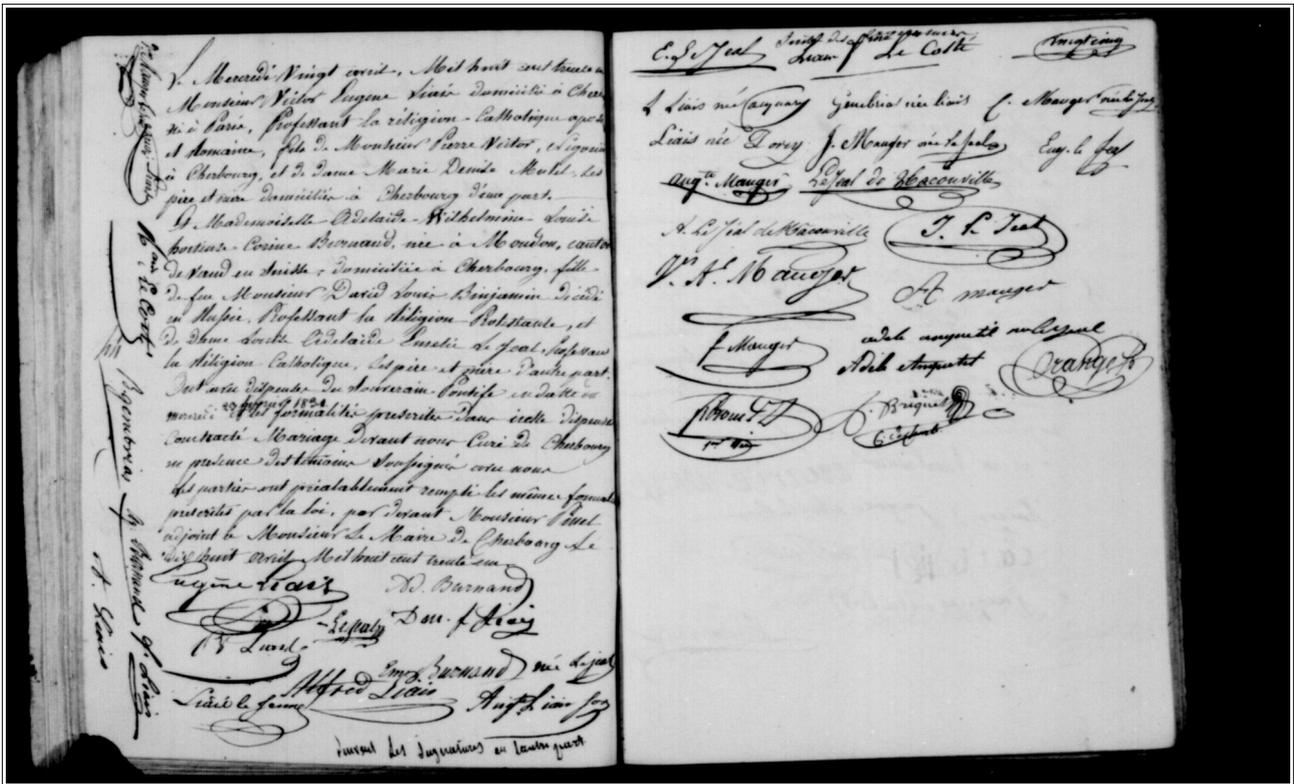 Le Mercredi Vingt avril, Mil huit cent trente un
Monsieur Victor Eugene Liais domicilié à Cher
né à Paris, Professant la réligion Catholique apos
et Romaine, fils de Monsieur Pierre Victor, négocian
à Cherbourg, et de dame Marie Denise Mutel, les
pere et mere domicilier à Cherbourg d'une part.
Et Mademoiselle Adelaide Wilhelmine Louise
hortense Corine Burnand, née à Moudon, canton
de Vaud en Suisse, domiciliée à Cherbourg, fille
de feu Monsieur David Louis Binjamin décédé
en Russie, Professant la Réligion Protestante, et
de Dame Louise Adelaide Emelie Le Jeal, professan
la Réligion Catholique, les pere et mere d'autre part.
Ont avec dispense du Souverain Pontife en datte du
mercredi 23 février 1831 et les formalités prescrites dans icelle dispense
Contracté Mariage devant nous Curé de Cherbourg
en presence des temoins Soussignés avec nous
Les parties ont préalablement rempli les même formal
prescrites par la loi, par devant Monsieur Pinel
adjoint de Monsieur Le Maire de Cherbourg Le
dix huit avril Mil huit cent trente un
Eugène Liais Ad. Burnand
Den. f Liais
Burnand née Lejeal
Alfred Liais
Liais le jeune Augt Liais
Suivent les Signatures en l'autre part
Bgembria
Burnand
f. Liais
A. Liais
E. Le Jeal Suite des Le Costé vingt cinq
L Liais née Cacquay Gembria née liais C. Mauger née le Jeal
Liais née Dorey J. Mauger née Le Jeal Eug. le Jeal
Augte Mauger LeJeal de Haconville
A. Le Jeal de Haconville J. Le Jeal
Mauger
A mauger
f Mauger adele anquetil née lejeal
Adele Anquetil
Briquet